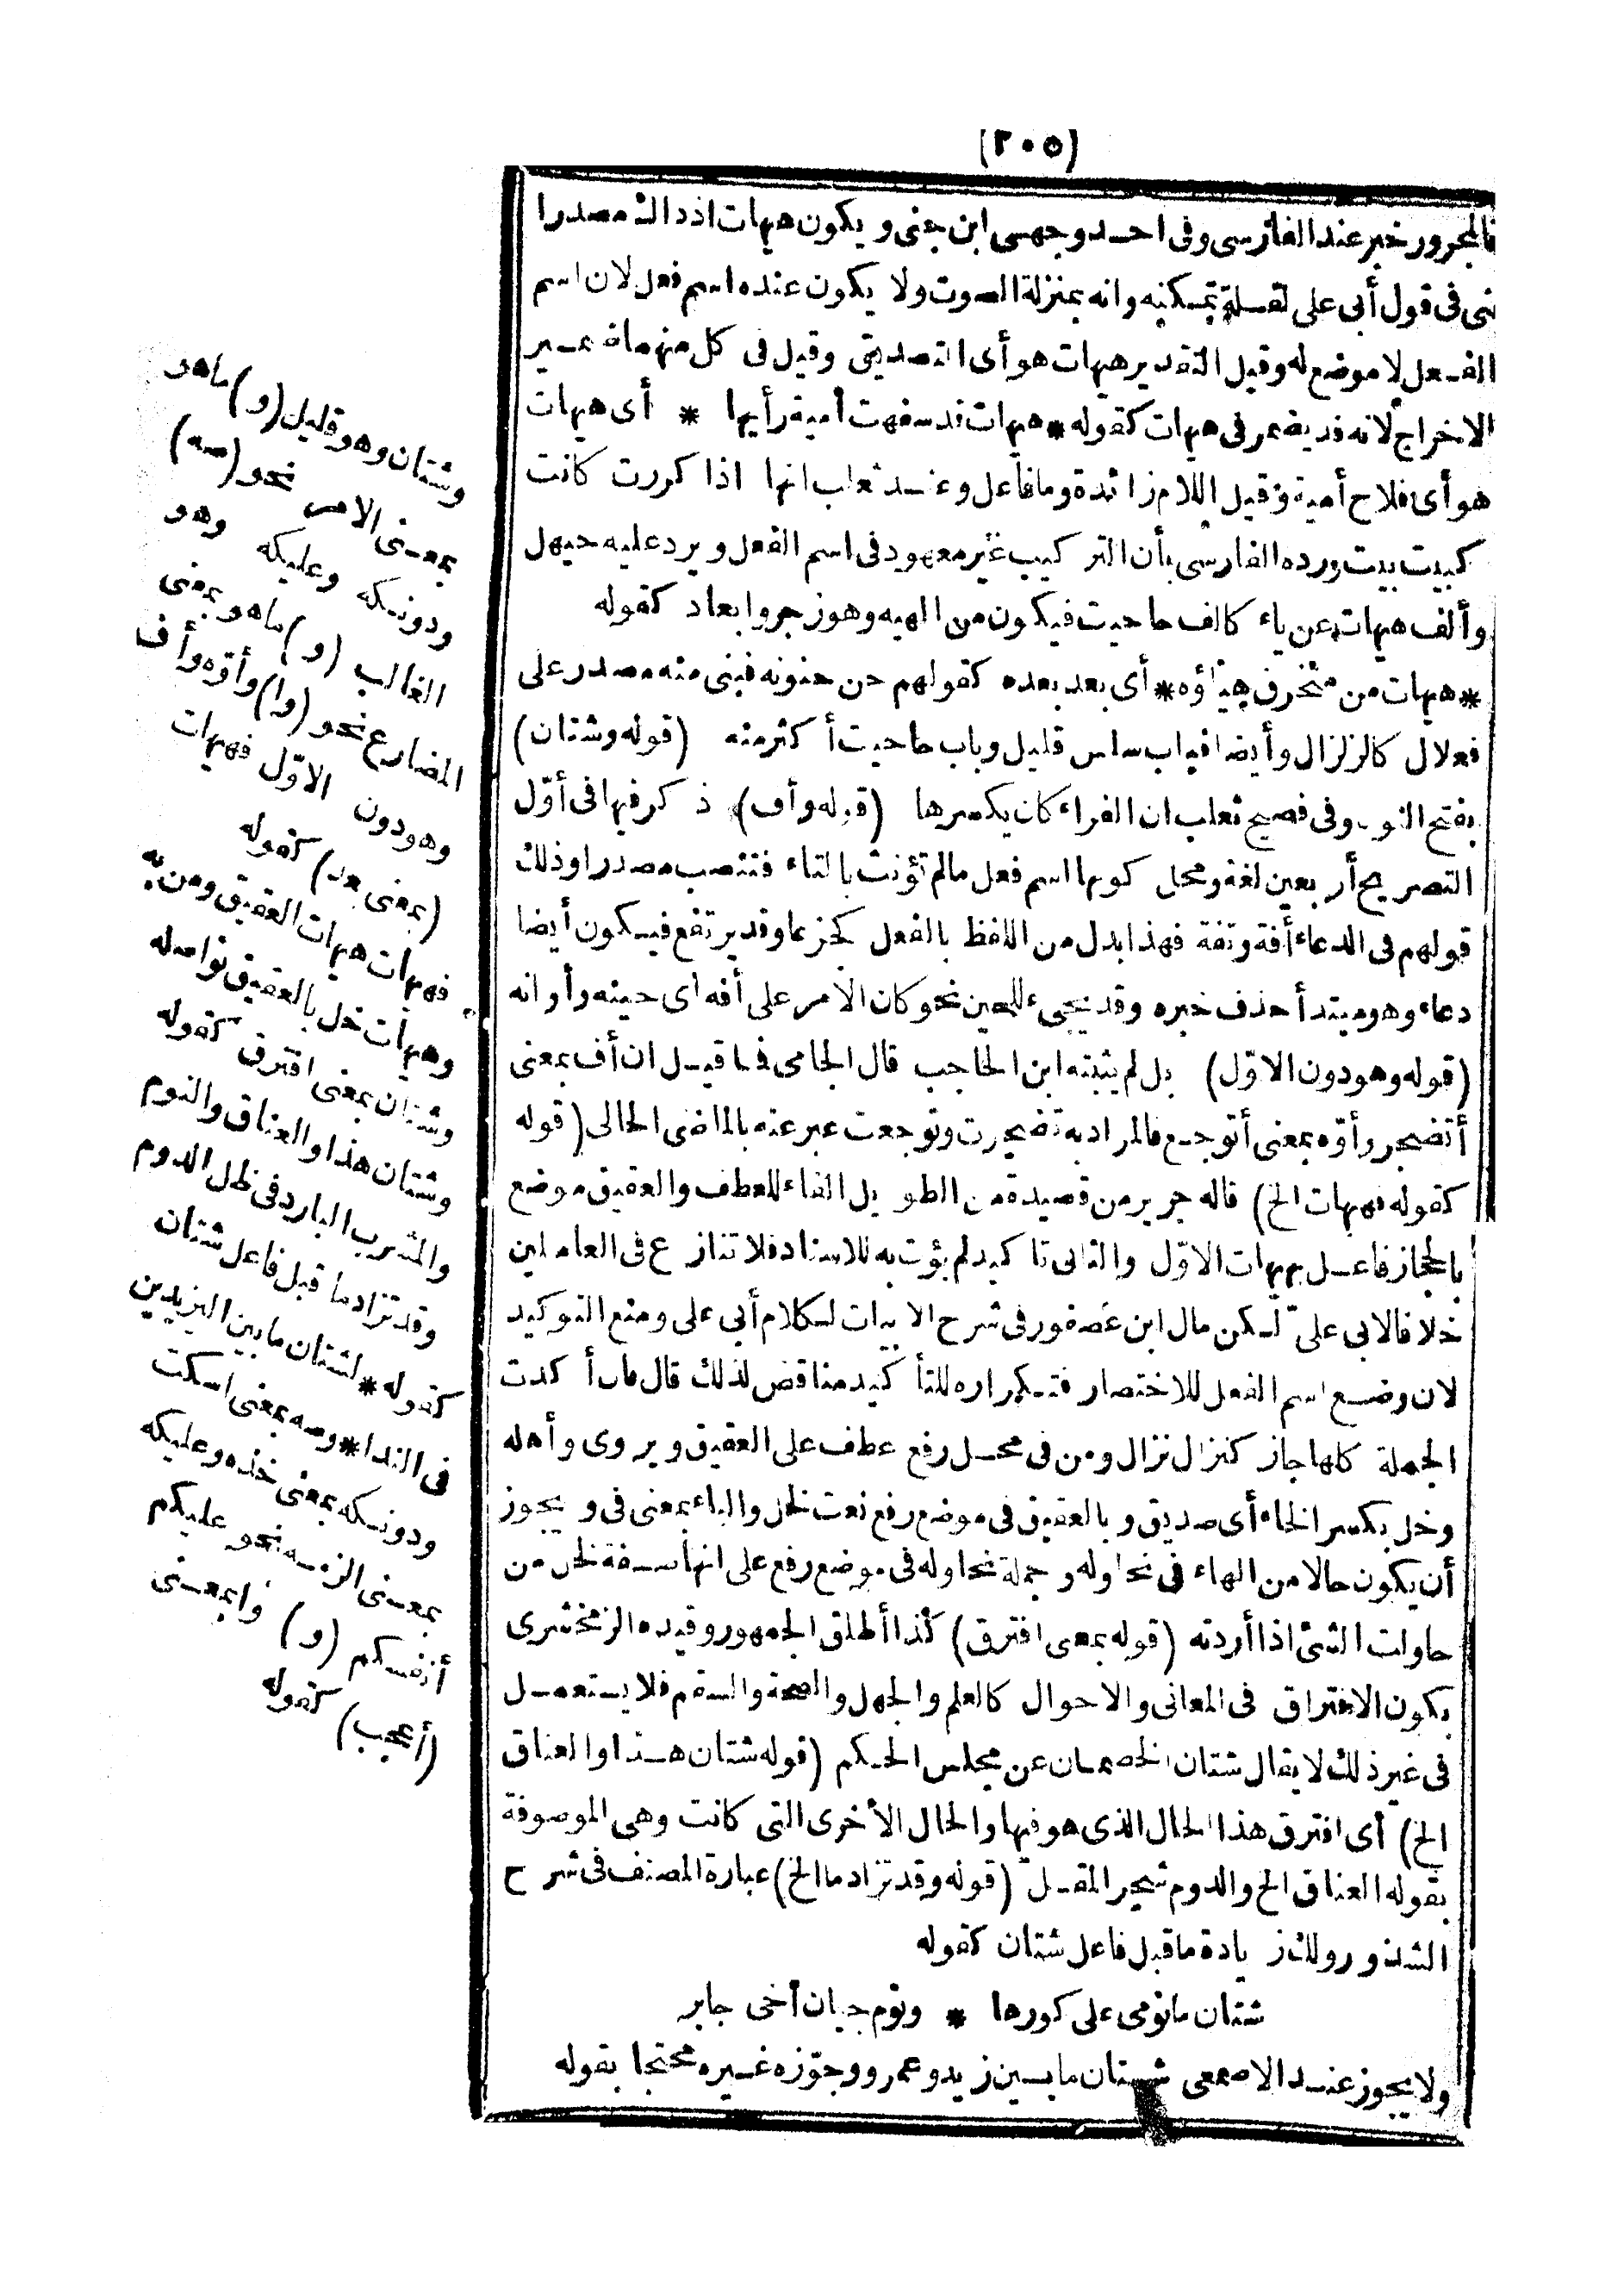 (٢٠٥)
فالمجرور خبر عند الفارسى وفى احد وجهى ابن جنى ويكون هيهات اذ ذاك مصدرا
بنى فى قول أبى على لقلة تمكنه وانه بمنزلة الصوت ولا يكون عنده اسم فعل لان اسم
الفعل لا موضع له وقيل التقدير هيهات هو أى التصديق وقيل فى كل منهما ضمير
الاخراج لانه قد يضمر فى هيهات كقوله * هيهات قد سفهت أمية رأيها * أى هيهات
هو أى فلاح أمية وقيل اللام زائدة وما فاعل وعند ثعلب انها اذا كررت كانت
كبيت بيت ورده الفارسى بأن التركيب غير معهود فى اسم الفعل ويرد عليه حيهل
وألف هيهات عن ياء كالف حاحيت فيكون من الهيه وهو زجر وابعاد كقوله
* هيهات من منخرق هيهاؤه * أى بعد بعده كقولهم جن جنونه فبنى منه مصدر على
فعلال كالزلزال وأيضا فباب سلس قليل وباب حاحيت أكثر منه (قوله وشتان)
بفتح النون وفى فصيح ثعلب ان الفراء كان يكسرها (قوله وأف) ذكر فيها فى أوّل
التصريح أربعين لغة ومحل كونها اسم فعل ما لم تؤنث بالتاء فتنتصب مصدرا وذلك
قولهم فى الدعاء أفة وتفة فهذا بدل من اللفظ بالفعل كجزعا وقد يرتفع فيكون أيضا
دعاء وهو مبتدأ حذف خبره وقد يجىء للحين نحو كان الامر على أفه أى حينه وأوانه
(قوله وهو دون الاوّل) بل لم يثبته ابن الحاجب قال الجامى فما قيل ان أف بمعنى
أتضجر وأوّه بمعنى أتوجع فالمراد به تضجرت وتوجعت عبر عنه بالماضى الحالى (قوله
كقوله فهيهات الخ) قاله جرير من قصيدة من الطويل الفاء للعطف والعقيق موضع
بالحجاز فاعل بهيهات الاوّل والثانى تاكيد لم يؤت به للاسناد فلا تنازع فى العاملين
خلافا لابى علىّ لكن مال ابن عصفور فى شرح الابيات لكلام أبى على ومنع التوكيد
لان وضع اسم الفعل للاختصار فتكراره للتأكيد مناقض لذلك قال فان أكدت
الجملة كلها جاز كنزال نزال ومن فى محل رفع عطف على العقيق ويروى وأهله
وخل بكسر الخاء أى صديق وبالعقيق فى موضع رفع نعت لخل والباء بمعنى فى ويجوز
أن يكون حالا من الهاء فى نحاوله وجملة نحاوله فى موضع رفع على انها صفة لخل من
حاولت الشئ اذا أردته (قوله بمعنى افترق) كذا أطلق الجمهور وقيده الزمخشرى
بكون الافتراق فى المعانى والاحوال كالعلم والجهل والصحة والسقم فلا يستعمل
فى غير ذلك لا يقال شتان الخصمان عن مجلس الحكم (قوله شتان هذا والعناق
الخ) أى افترق هذا الحال الذى هو فيها والحال الأخرى التى كانت وهى الموصوفة
بقوله العناق الخ والدوم شجر المقل (قوله وقد تزاد ما الخ) عبارة المصنف فى شرح
الشذور ولك زيادة ما قبل فاعل شتان كقوله
شتان ما نومى على كورها * ونوم حيان أخى جابر
ولا يجوز عند الاصمعى شتان ما بين زيد وعمرو وجوّزه غيره محتجا بقوله
وشتان وهو قليل (و) ما هو
بمعنى الامر نحو (صه)
ودونكه وعليكه وهو
الغالب (و) ما هو بمعنى
المضارع نحو (وا) وأوّه وأف
وهو دون الاوّل فهيهات
(بمعنى بعد) كقوله
فهيهات هيهات العقيق ومن به
وهيهات خل بالعقيق نواصله
وشتان بمعنى افترق كقوله
وشتان هذا والعناق والنوم
والمشرب البارد فى ظل الدوم
وقد تزاد ما قبل فاعل شتان
كقوله * لشتان ما بين اليزيدين
فى الندا * وصه بمعنى اسكت
ودونكه بمعنى خذه وعليكه
بمعنى الزمه نحو عليكم
أنفسكم (و) وا بمعنى
(أعجب) كقوله